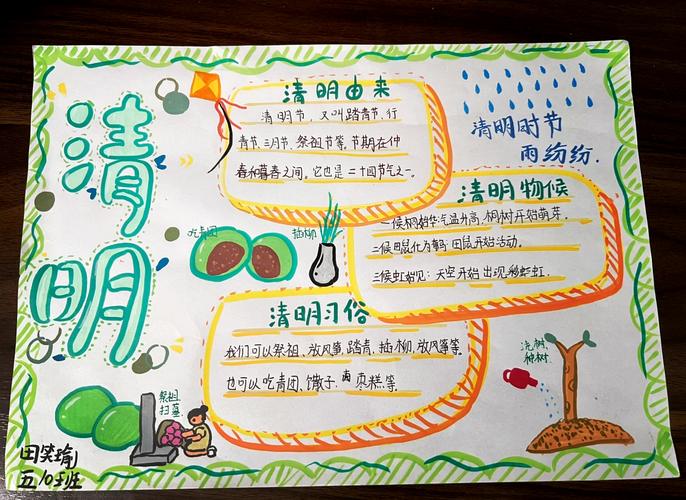 清明
清明由来
清明节，又叫踏青节、行
青节、三月节、祭祖节等，节期在仲
春和暮春之间。它也是二十四节气之一。
清明时节
雨纷纷.
清明物候
一候桐始华：气温升高，桐树开始萌芽。
二候田鼠化为鹌：田鼠开始活动。
三候虹始见：天空开始出现彩虹.
吃青团
插柳
清明习俗
我们可以祭祖、放风筝、踏青、插柳、放风筝等.
也可以吃青团、馓子、卤枣糕等
浇树、
种树.
祭祖
扫墓
田笑瑜
五10班